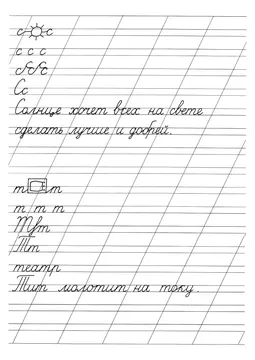 с с
с с с
С С С
Сс
Солнце хочет всех на свете
сделать лучше и добрей.
т т
т т т
Т т
Тт
театр
Тит молотит на току.